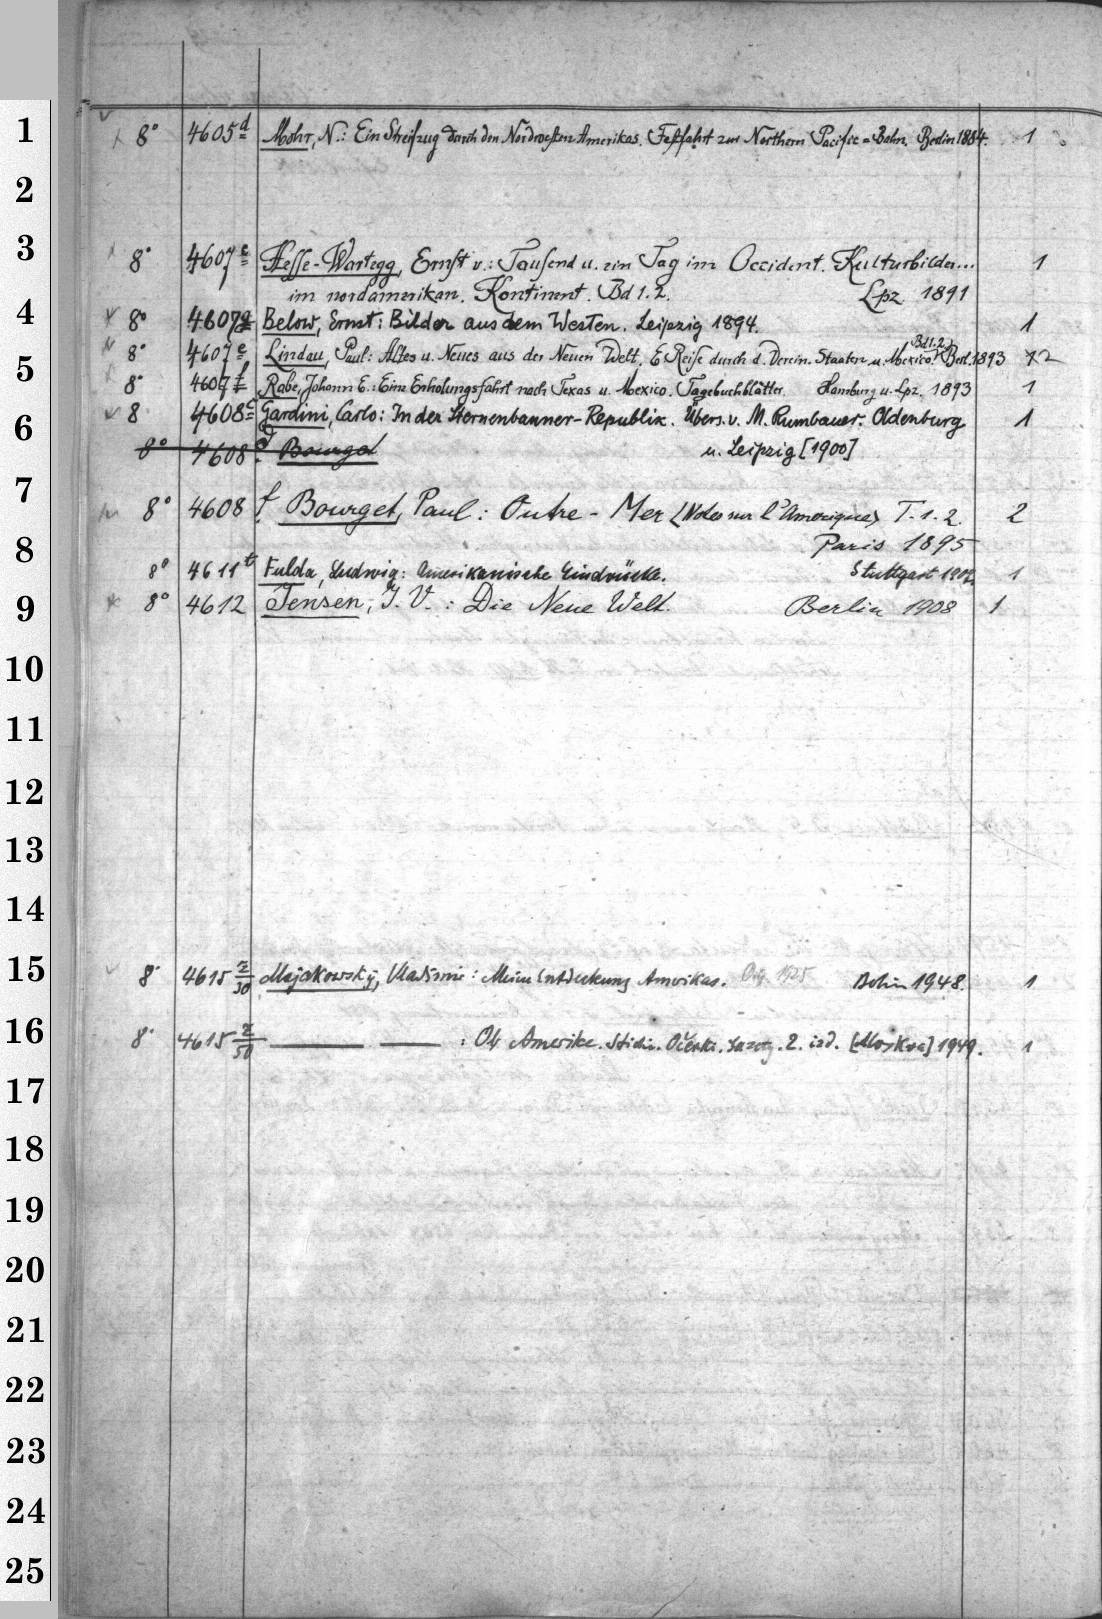 1 8° 4605d Mohr, N.: Ein Streifzug durch den Nordwesten Amerikas. Festfahrt zur Northern Pacific=Bahn. Berlin 1884. 1
2
3 8° 4607c Hesse-Wartegg, Ernst v.: Tausend u. ein Tag im Occident. Kulturbilder... 1
im nordamerikan. Kontinent. Bd 1.2. Lpz 1891
4 8° 4607d Below, Ernst: Bilder aus dem Westen. Leipzig 1894. 1
Bd 1.2
5 8° 4607e Lindau, Paul: Altes u. Neues aus der Neuen Welt. E. Reise durch d. Verein. Staaten u. Mexico. Berl. 1893 2
8° 4607f Rabe, Johann E.: Eine Erholungsfahrt nach Texas u. Mexico. Tagebuchblätter. Hamburg u. Lpz. 1893 1
6 8 4608c Gardini, Carlo: In der Sternenbanner-Republik. Übers. v. M. Rumbauer. Oldenburg 1
8° 4608d Bourget u. Leipzig [1900]
7 8° 4608f Bourget, Paul: Outre-Mer (Notes sur l'Amerique) T. 1.2. 2
8 Paris 1895
8° 4611t Fulda, Ludwig: Amerikanische Eindrücke. Stuttgart 1902 1
9 8° 4612 Jensen, J. V.: Die Neue Welt. Berlin 1908 1
10
11
12
13
14
15 8° 4615 z/30 Majakowskij, Vladimir: Meine Entdeckung Amerikas. Orig. 1925 Berlin 1948. 1
16 8° 4615 z/50 ——— ——— : Ob Amerike. Stichi. Očerki. 2. izd. [Moskva] 1949. 1
17
18
19
20
21
22
23
24
25